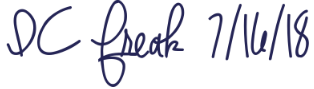 DC freak 7/16/18